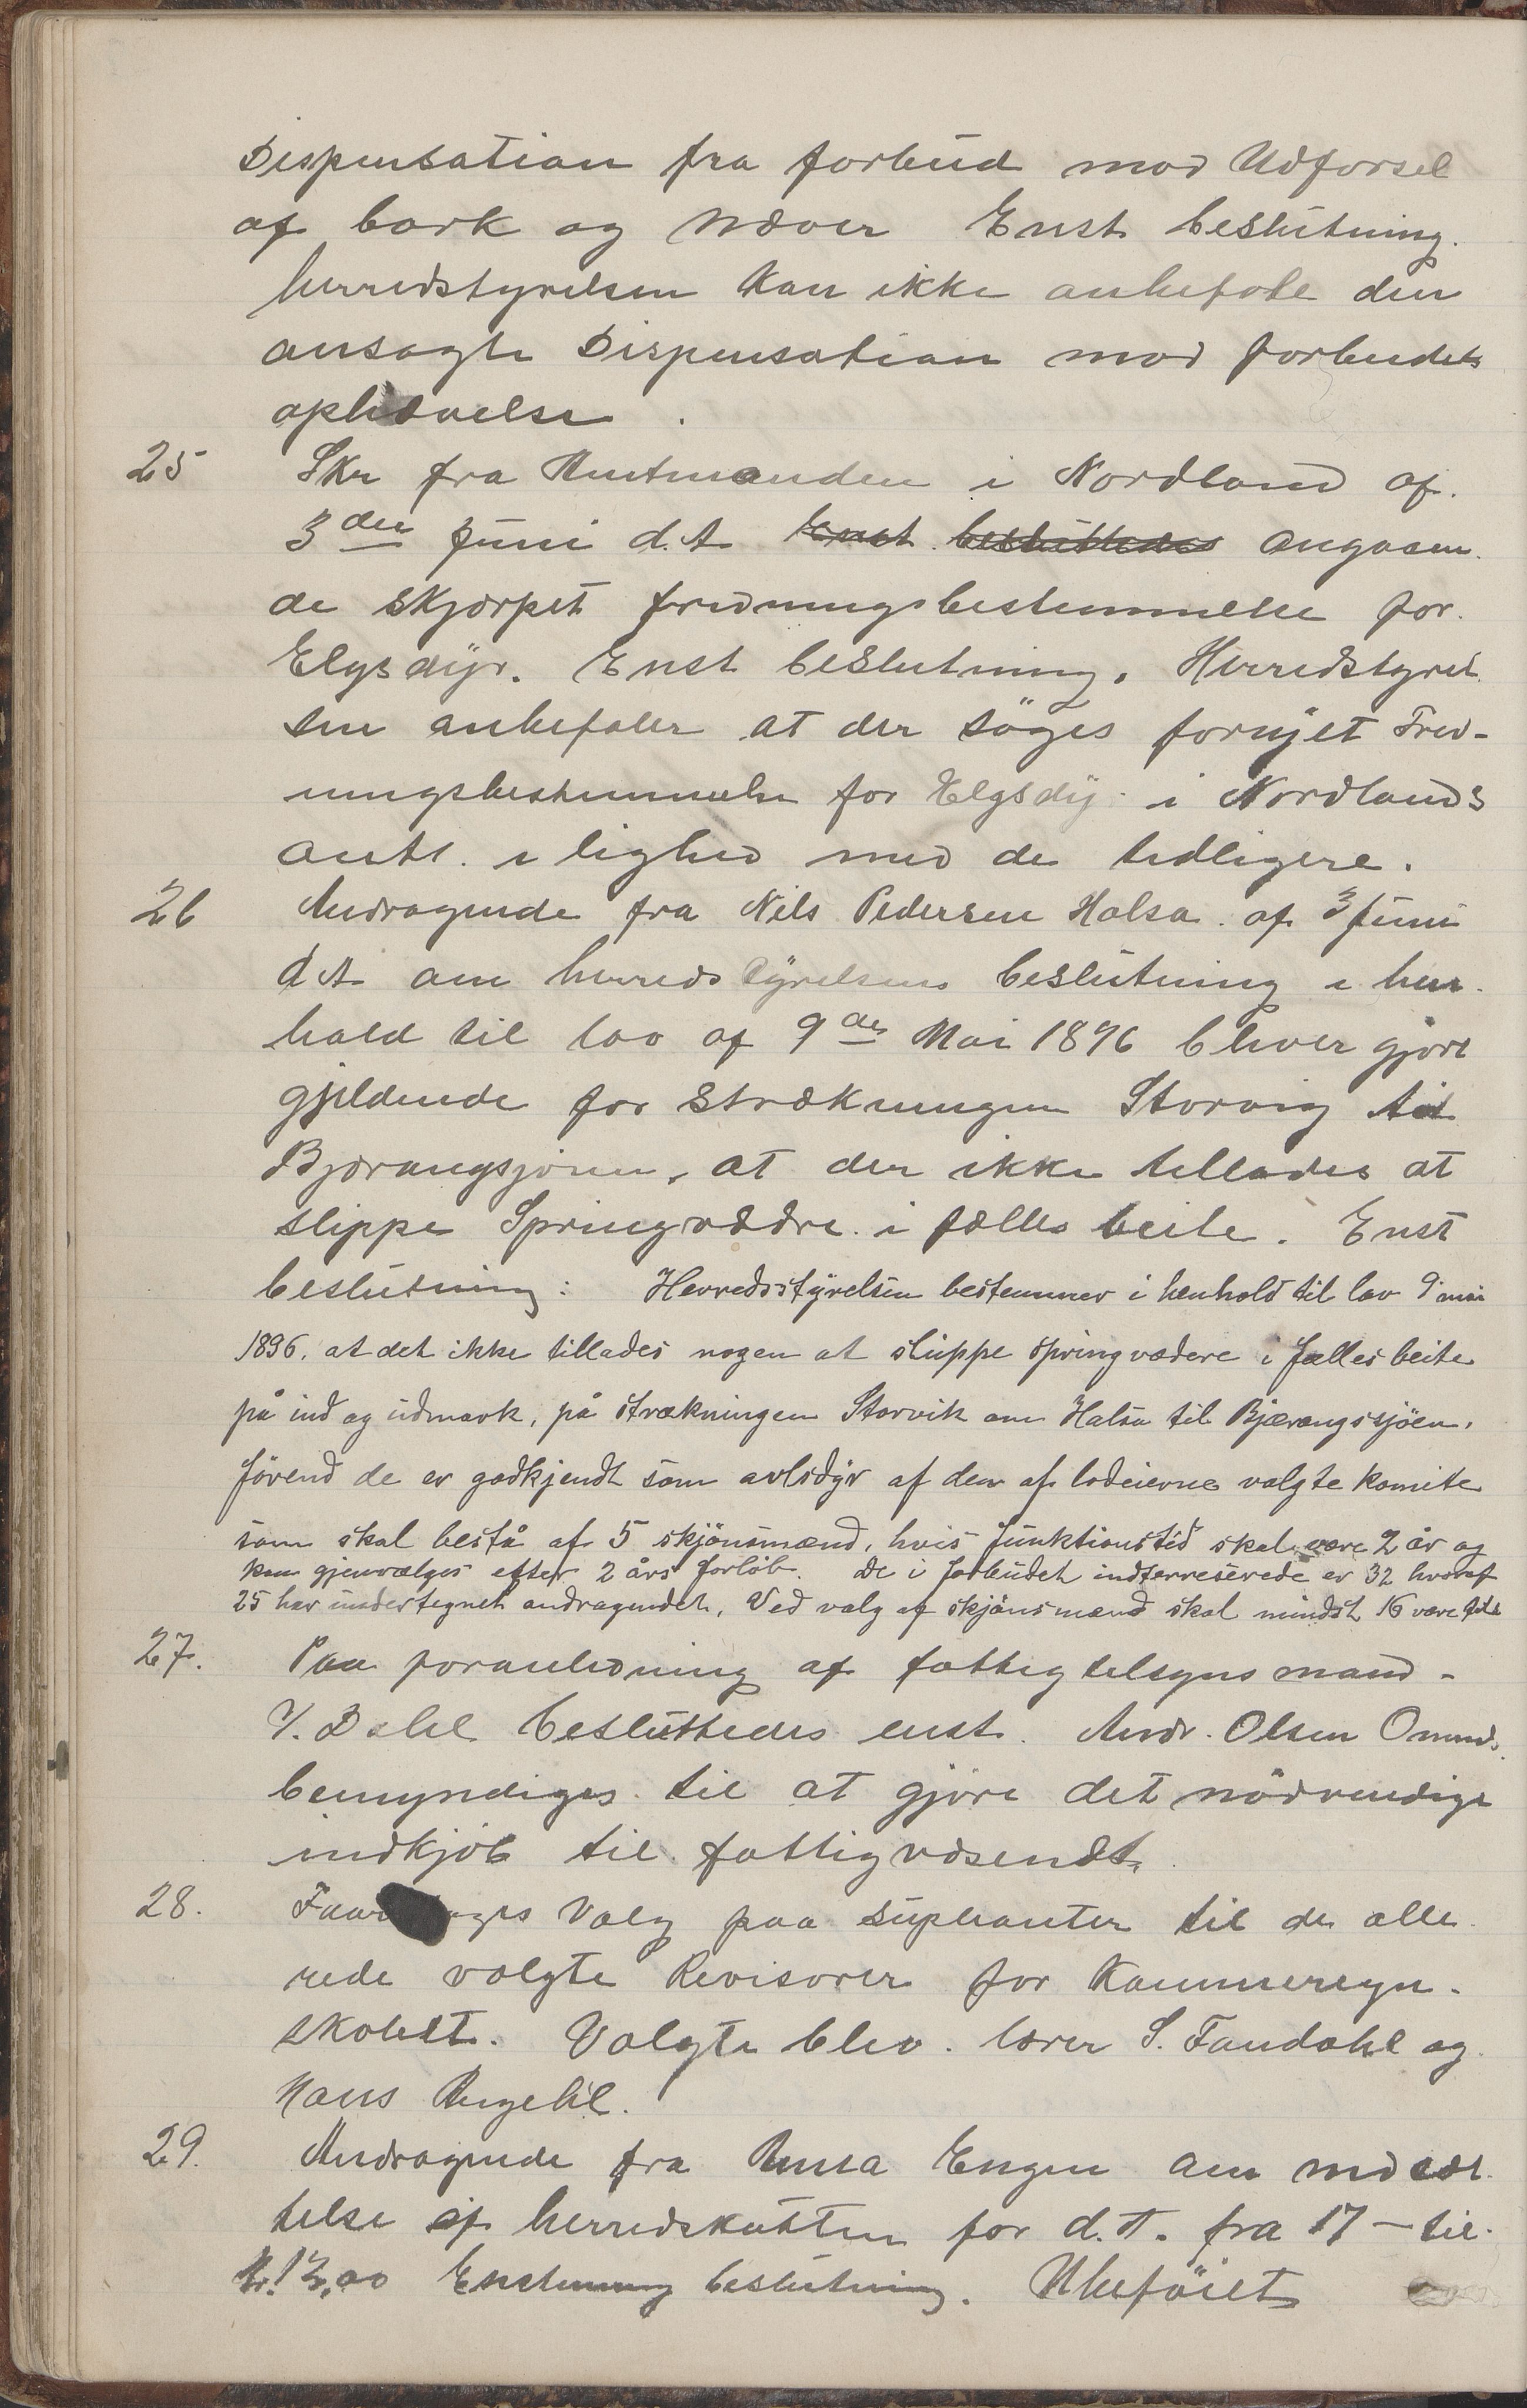 Dispensation fra forbud mod Udførsel
af bark og Næver Enst beslutning.
herredstyrelsen kan ikke anbefale den
ansøgte Dispensation mod forbudets
ophævelse.
25 Skr fra Amtmanden i Nordland af
3die Juni d.A. Enst besluttedes angaaen
de skjærpet fredningsbestemmelse for
Elgsdyr. Enst beslutning. Herredstyrel
sen anbefaler at der söges fornyet Fred-
ningsbestemmelse for Elgsdy i Nordlands
amt. i lighed med de tidligere.
26 Andragende fra Nils Pedersen Halsa af 3/Juni
d A om herredstyrelsens beslutning i hen
hold til lov af 9de Mai 1896 bliver gjort
gjeldende for Strækningen Storvig til
Bjærangsjøen, at der ikke tillades at
slippe Springvæddre i fælles beite. Enst
beslutning: Herredsstyrelsen bestemmer i henhold til lov 9 mai
1896, at det ikke tillades nogen at slippe springvædere i fælles beite
på ind og udmark, på strækningen Storvik om Halsa til Bjærangssjöen,
förend de er godkjendt som avlsdyr af den af lodeierne valgte komite
som skal bestå af 5 skjönsmænd, hvis funktionstid skal være 2 år og
kan gjenvælges efter 2 års forløb. De i forbudet indterreserede er 32 hvoraf
25 har undertegnet andragendet. Ved valg af skjönsmænd skal mindst 16 være
27. Paa foranledning af fattigtilsynsmand
Dahl besluttedes enst. Andr. Olsen
bemyndiges til at gjøre det nödvendige
indkjöb til fattigvæsendet.
28. Valg paa suplianter til de alle
rede valgte Revisorer for Kommuneregn-
skabet. Valgte blev. lærer S. Fondahl og
Hans Angell.
29. Andragende fra Anna Engen om nedsæt
telse af herredskatten for d.A. fra 17 - til
kr. 12,00 Enstemmig beslutning. Ubeföiet